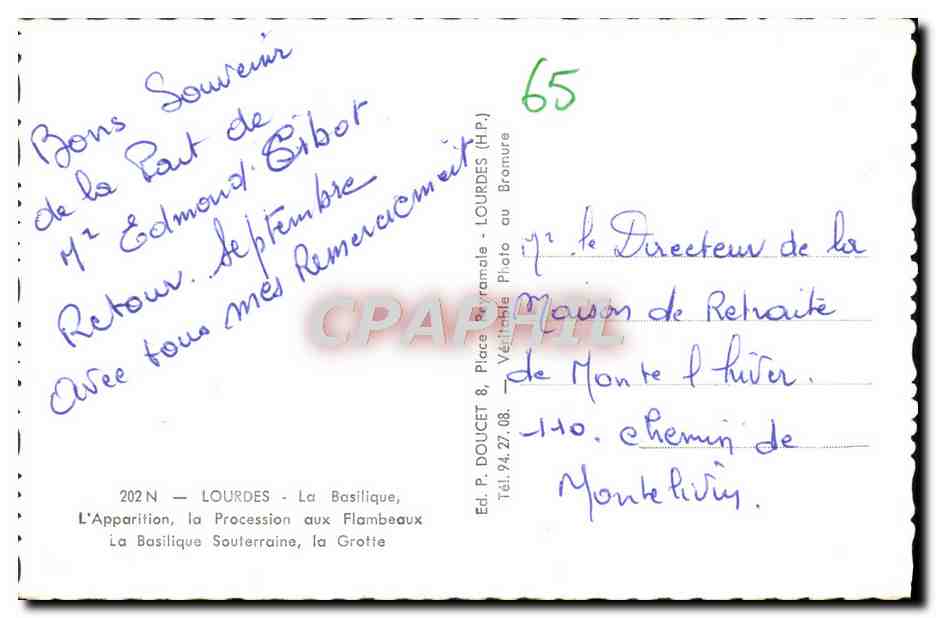 Bons Souvenir
de la Part de
Mr Edmond Gibot
Retour. Septembre
avec tous mes Remerciement
65
Mr le Directeur de la
Maison de Retraite
de Monte l hiver.
110. chemin de
202 N — LOURDES - La Basilique,
L'Apparition, la Procession aux Flambeaux
La Basilique Souterraine, la Grotte
Ed. P. DOUCET 8, Place Peyramale - LOURDES (H.P.)
Tél. 94.27.08. — Véritable Photo au Bromure
CPAPHIL